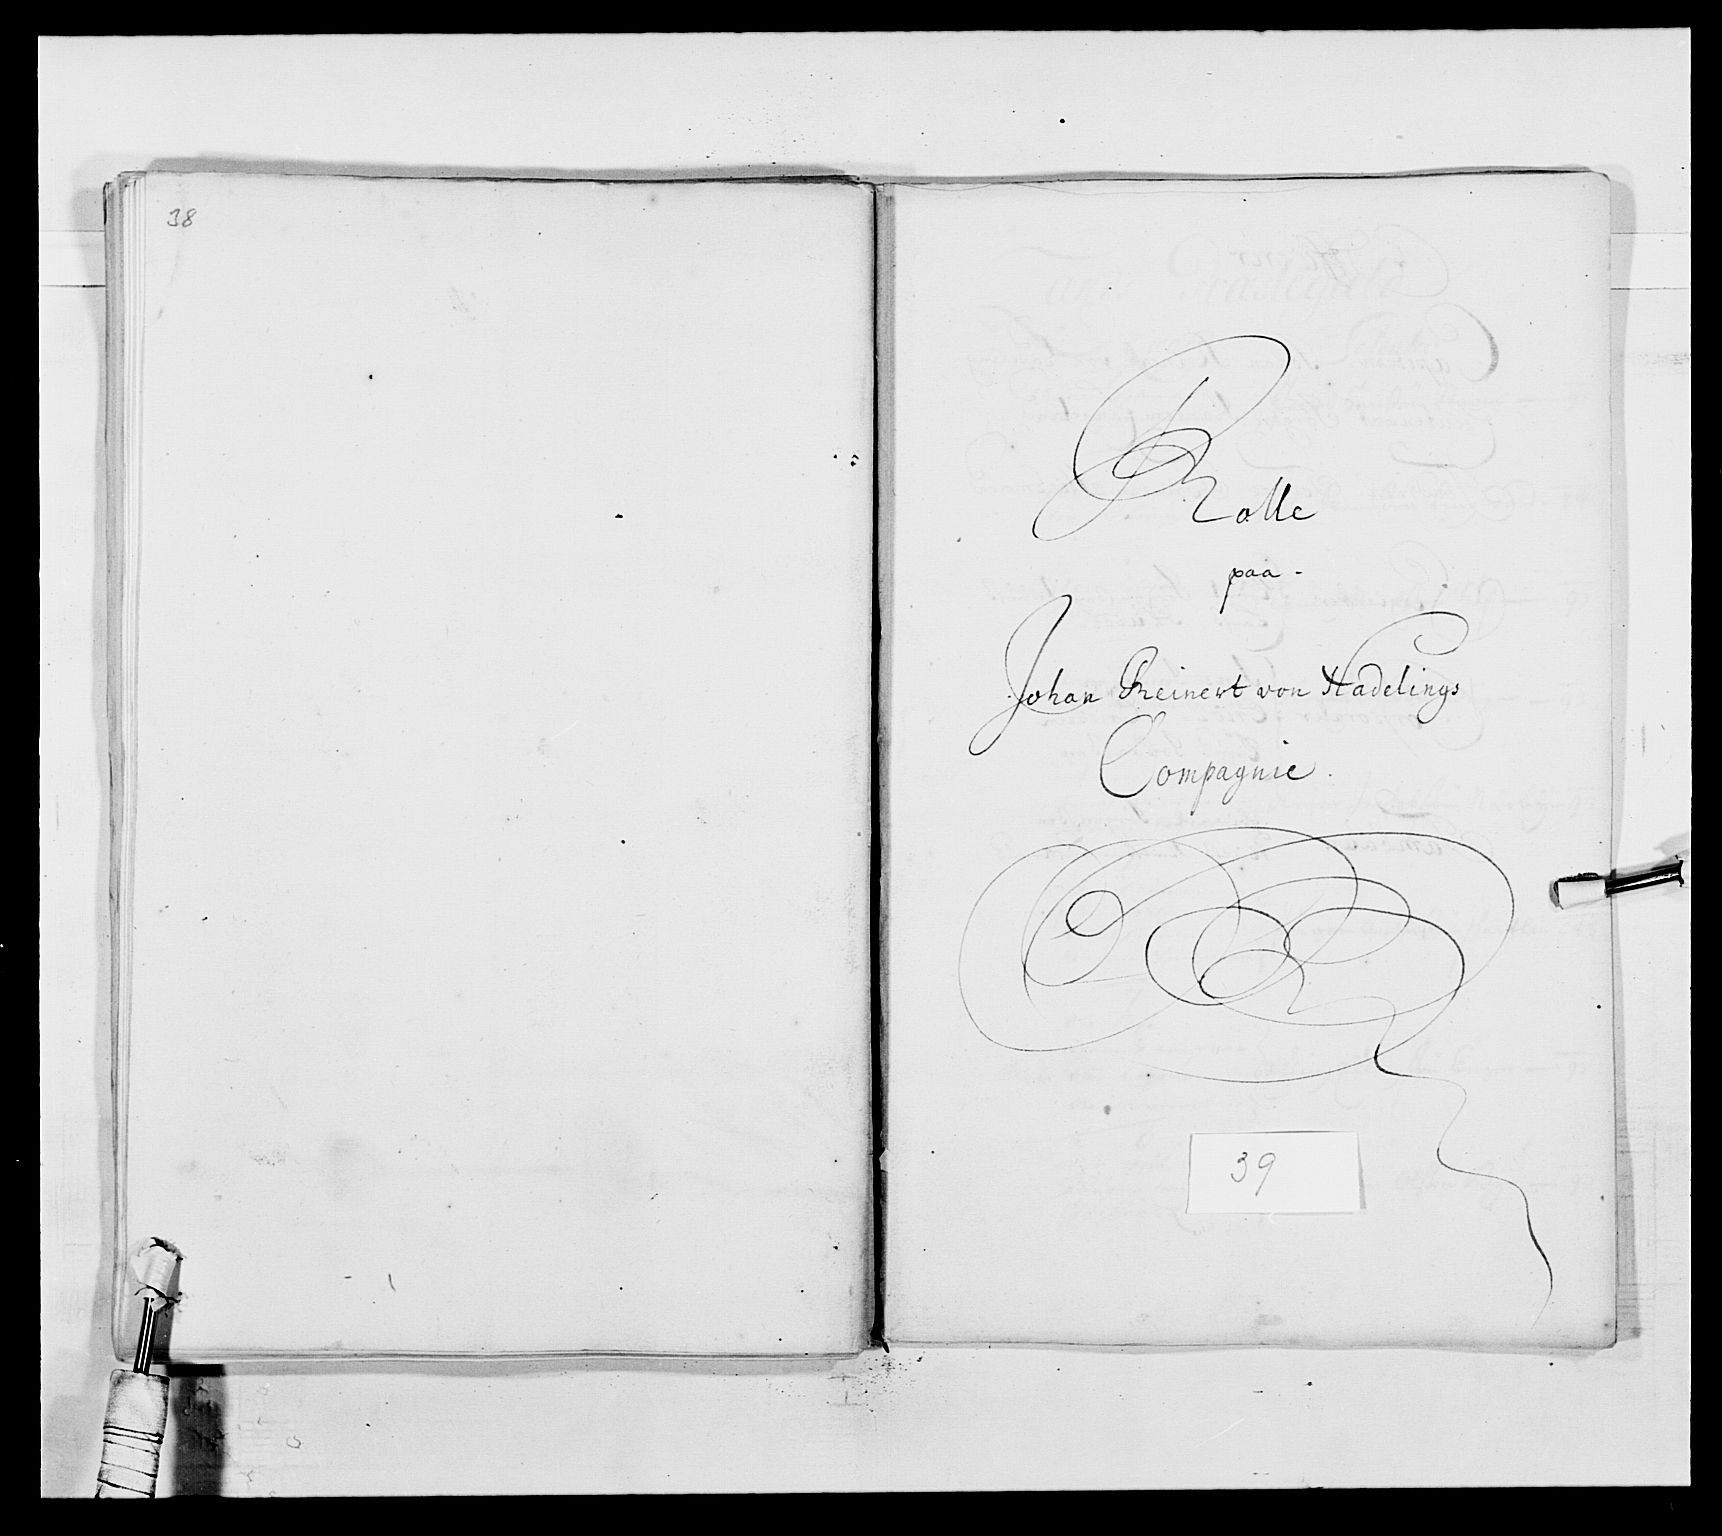 38
Rolle
paa -
Johan Reinert von Hadelings
Compagnie.
39